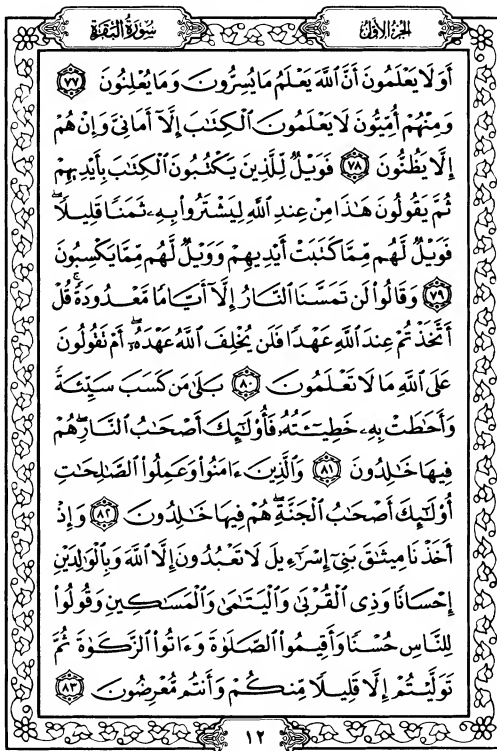 سُورَةُ البَقَرَةِ
الجُزْءُ الأَوَّلُ
أَوَلَا يَعْلَمُونَ أَنَّ ٱللَّهَ يَعْلَمُ مَا يُسِرُّونَ وَمَا يُعْلِنُونَ ٧٧
وَمِنْهُمْ أُمِّيُّونَ لَا يَعْلَمُونَ ٱلْكِتَٰبَ إِلَّآ أَمَانِىَّ وَإِنْ هُمْ
إِلَّا يَظُنُّونَ ٧٨ فَوَيْلٌ لِّلَّذِينَ يَكْتُبُونَ ٱلْكِتَٰبَ بِأَيْدِيهِمْ
ثُمَّ يَقُولُونَ هَٰذَا مِنْ عِندِ ٱللَّهِ لِيَشْتَرُوا۟ بِهِۦ ثَمَنًا قَلِيلًا ۖ
فَوَيْلٌ لَّهُم مِّمَّا كَتَبَتْ أَيْدِيهِمْ وَوَيْلٌ لَّهُم مِّمَّا يَكْسِبُونَ
٧٩ وَقَالُوا۟ لَن تَمَسَّنَا ٱلنَّارُ إِلَّآ أَيَّامًا مَّعْدُودَةً ۚ قُلْ
أَتَّخَذْتُمْ عِندَ ٱللَّهِ عَهْدًا فَلَن يُخْلِفَ ٱللَّهُ عَهْدَهُۥٓ ۖ أَمْ تَقُولُونَ
عَلَى ٱللَّهِ مَا لَا تَعْلَمُونَ ٨٠ بَلَىٰ مَن كَسَبَ سَيِّئَةً
وَأَحَٰطَتْ بِهِۦ خَطِيٓـَٔتُهُۥ فَأُو۟لَٰٓئِكَ أَصْحَٰبُ ٱلنَّارِ ۖ هُمْ
فِيهَا خَٰلِدُونَ ٨١ وَٱلَّذِينَ ءَامَنُوا۟ وَعَمِلُوا۟ ٱلصَّٰلِحَٰتِ
أُو۟لَٰٓئِكَ أَصْحَٰبُ ٱلْجَنَّةِ ۖ هُمْ فِيهَا خَٰلِدُونَ ٨٢ وَإِذْ
أَخَذْنَا مِيثَٰقَ بَنِىٓ إِسْرَٰٓءِيلَ لَا تَعْبُدُونَ إِلَّا ٱللَّهَ وَبِٱلْوَٰلِدَيْنِ
إِحْسَانًا وَذِى ٱلْقُرْبَىٰ وَٱلْيَتَٰمَىٰ وَٱلْمَسَٰكِينِ وَقُولُوا۟
لِلنَّاسِ حُسْنًا وَأَقِيمُوا۟ ٱلصَّلَوٰةَ وَءَاتُوا۟ ٱلزَّكَوٰةَ ثُمَّ
تَوَلَّيْتُمْ إِلَّا قَلِيلًا مِّنكُمْ وَأَنتُم مُّعْرِضُونَ ٨٣
١٢